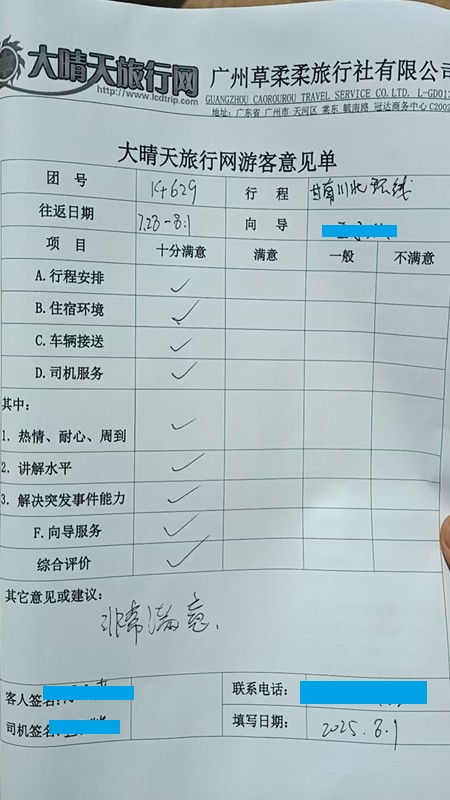 大晴天旅行网
http://www.lcdtrip.com
广州草柔柔旅行社有限公司
GUANGZHOU CAOROUROU TRAVEL SERVICE CO.LTD. L-GD01
地址: 广东省 广州市 天河区 棠东 毓南路 冠达商务中心 C2002
大晴天旅行网游客意见单
团 号 行 程 甘青川北环线
往返日期 7.23-8.1 向 导
项 目 十分满意 满意 一般 不满意
A.行程安排 ✓
B.住宿环境 ✓
C.车辆接送 ✓
D.司机服务 ✓
其中:
1. 热情、耐心、周到 ✓
2. 讲解水平 ✓
3. 解决突发事件能力 ✓
F.向导服务 ✓
综合评价 ✓
其它意见或建议:
非常满意.
客人签名: 联系电话:
司机签名: 填写日期: 2025.8.1